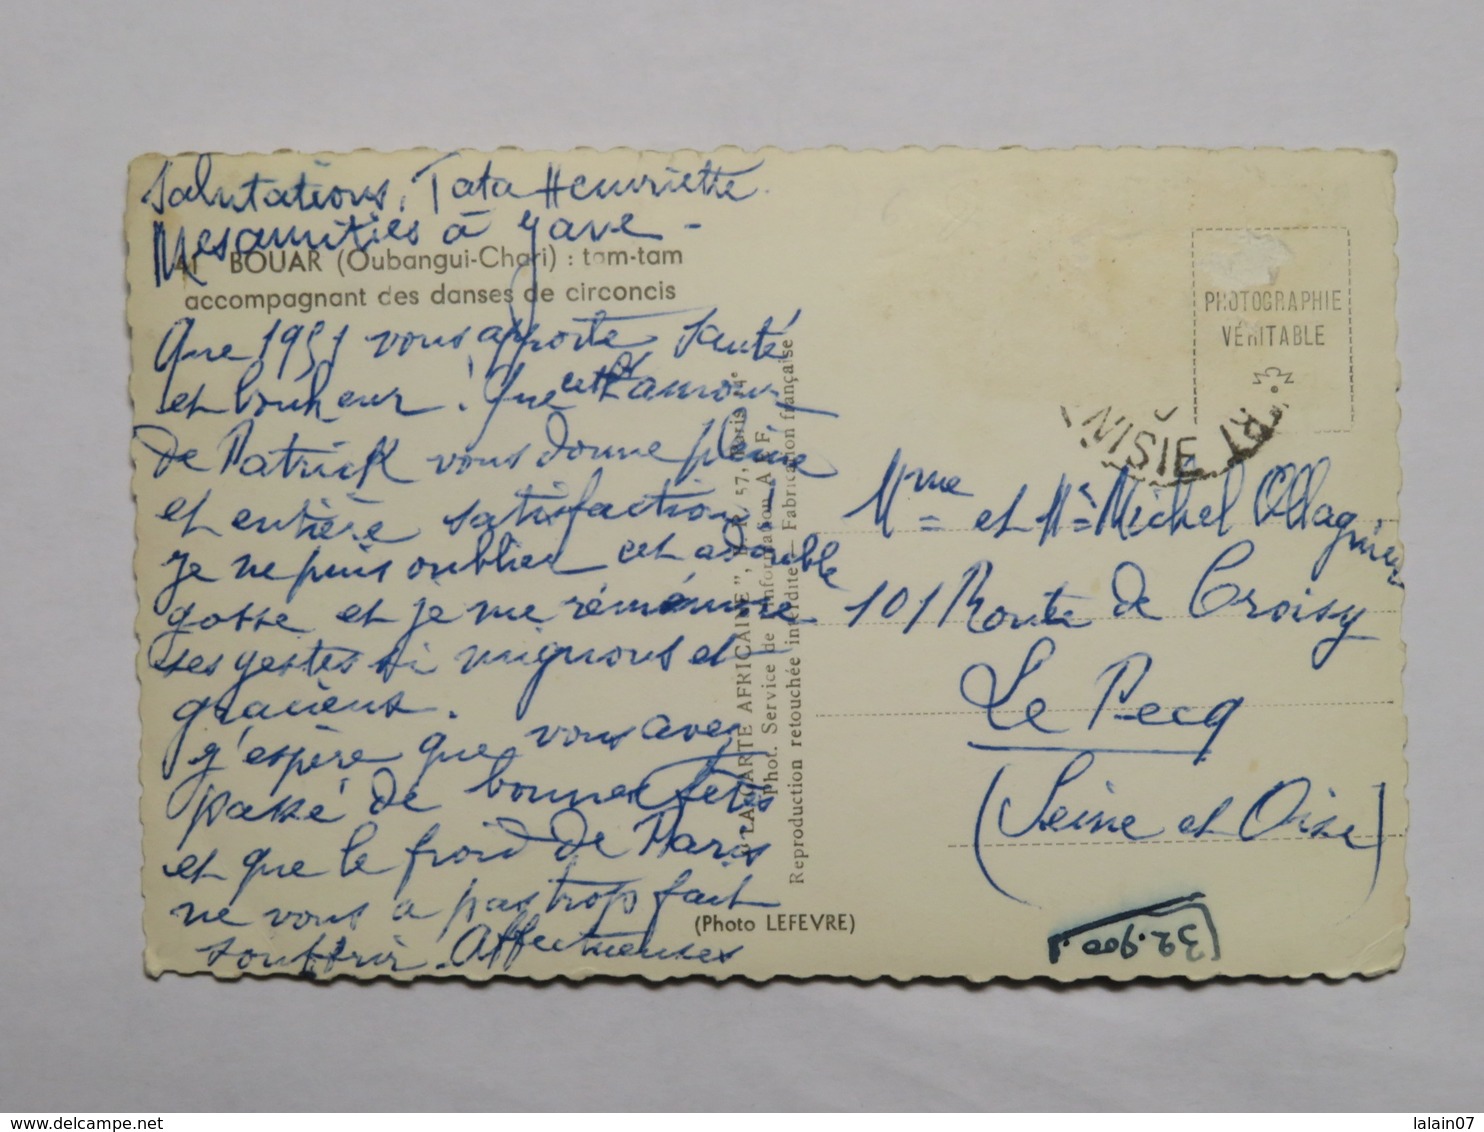 Salutations, Tata Henriette.
Mes amitiés à
41 BOUAR (Oubangui-Chari) : tam-tam
accompagnant des danses de circoncis
Que 1951 vous apporte santé
et bonheur ! Que cet amour
de Patrick vous donne pleine
et entière satisfaction.
Je ne puis oublier cet adorable
gosse et je me remémore
ses gestes si mignons et
gracieux.
J'espère que vous avez
passé de bonnes fêtes
et que le froid de Paris
ne vous a pas trop fait
souffrir. Affectueuses
"LA CARTE AFRICAINE", B. P. 57, Paris 14e
Phot. Service de l'Information A E F
Reproduction retouchée interdite — Fabrication française
(Photo LEFEVRE)
PHOTOGRAPHIE
VÉRITABLE
NISIE
Mme et Mr Michel Ollagnier
101 Route de Croissy
Le Pecq
(Seine et Oise)
32.900
delcampe.net
lalain07